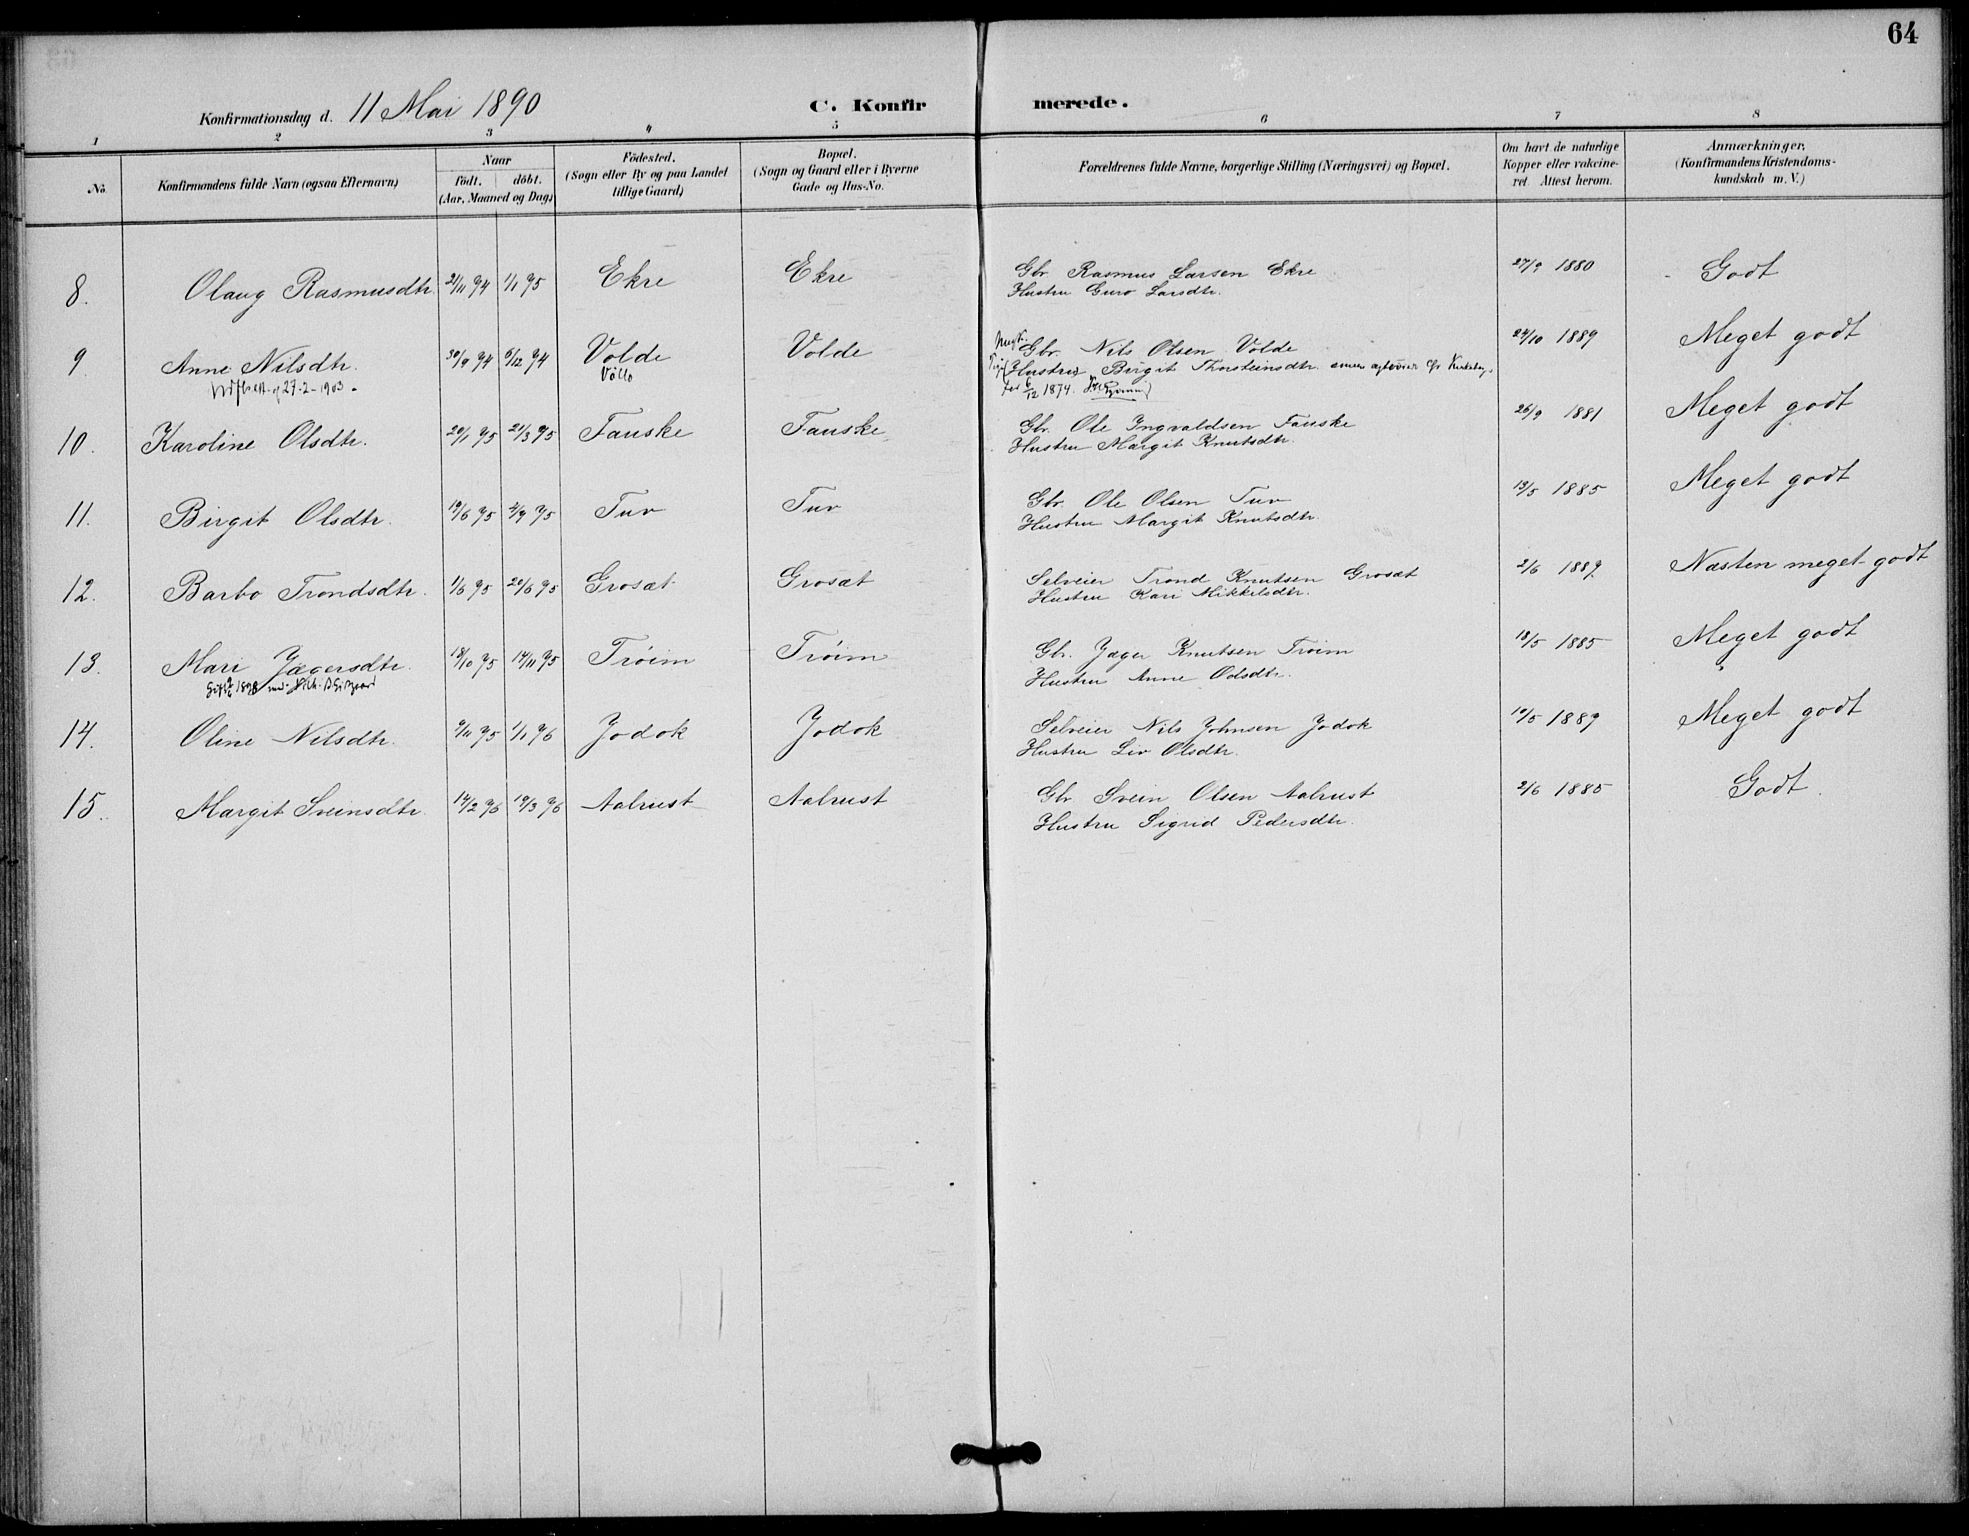 64
Konfirmationsdag d. 11 Mai 1890
C. Konfirmerede.
1 2 3 4 5 6 7 8
No.
Konfirmandens fulde Navn (ogsaa Efternavn)
Naar
födt. döbt.
(Aar, Maaned og Dag)
Födested.
(Sogn eller By og paa Landet
tillige Gaard)
Bopæl.
(Sogn og Gaard eller i Byerne
Gade og Hus-No.
Forældrenes fulde Navne, borgerlige Stilling (Næringsvei) og Bopæl.
Om havt de naturlige
Kopper eller vakcine-
ret. Attest herom.
Anmærkninger,
(Konfirmandens Kristendoms-
kundskab m. V.)
8. Olaug Rasmusdtr 21/11 74 1/1 75 Ekre Ekre Gbr Rasmus Larsen Ekre 27/9 1880 Godt
Hustru Guro Larsdtr.
9. Anne Nilsdtr. 30/9 74 6/12 74 Volde Volde Gbr. Nils Olsen Volde 24/10 1889 Meget godt
27-2-1903. Völlo (Hustru) Birgit Thorsteinsdtr.
6/12 1874.
10. Karoline Olsdtr. 20/1 75 21/3 75 Fauske Fauske Gbr. Ole Ingvaldsen Fauske 26/9 1881 Meget godt
Hustru Margit Knutsdtr.
11. Birgit Olsdtr. 19/6 75 4/7 75 Tuv Tuv Gbr. Ole Olsen Tuv 13/5 1885 Meget godt
Hustru Margit Knutsdtr.
12. Barbo Trondsdtr. 1/6 75 20/6 75 Grosæt Grosæt Selveier Trond Knutsen Grosæt 2/6 1889. Næsten meget godt
Hustru Kari Mikkelsdtr.
13. Mari Jægersdtr. 18/10 75 14/11 75 Tröim Tröim Gbr. Jæger Knutsen Tröim 18/5 1885 Meget godt
Gift 1898 Hustru Anne Odsdtr.
14. Oline Nilsdtr. 9/11 75 1/1 76 Jodok Jodok Selveier Nils Johnsen Jodok 19/5 1889 Meget godt
Hustru Liv Olsdtr.
15. Margit Sveinsdtr. 14/2 76 19/3 76 Aalrust Aalrust Gbr. Svein Olsen Aalrust 2/6 1885 Godt.
Hustru Sigrid Pedersdtr.